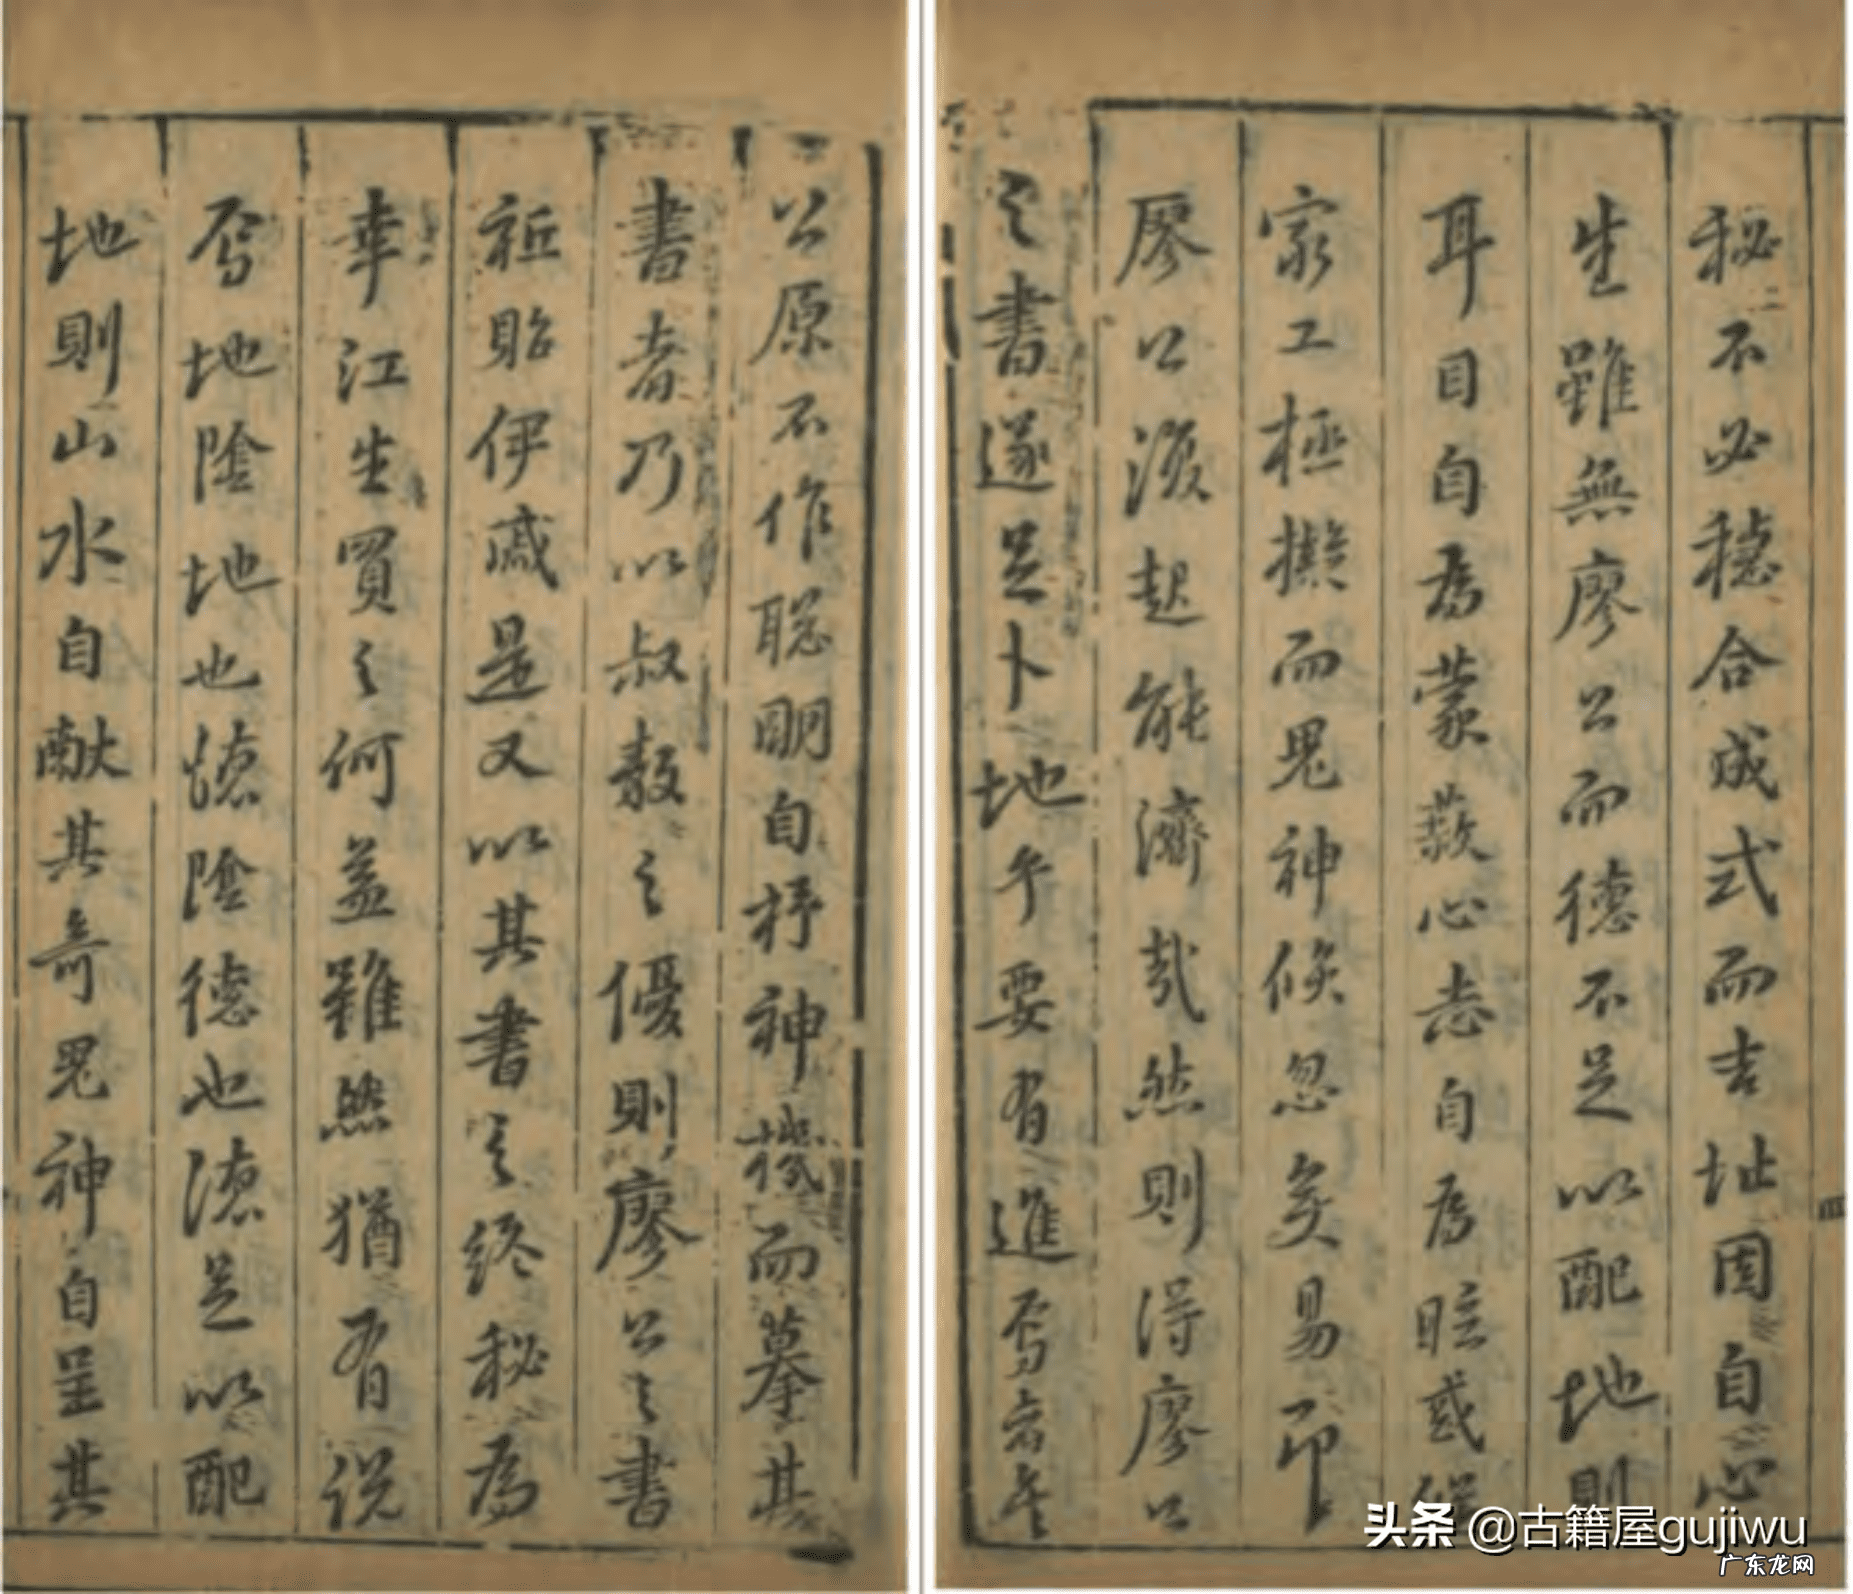 公原不作聰明自抒神機而摹其
書者乃以叔敖之優則廖公之書
祗貽伊戚是又以其書之終秘為
幸江生買之何益雖然猶有說
焉地陰地也德陰德也德足以配
地則山水自献其奇鬼神自呈其
秘不必穩合成式而吉址固自心
生雖無廖公而德不足以配地則
耳目自為蒙蔽心志自為眩惑
家工極擬而鬼神倏忽変易即
廖公復起能濟哉然則得廖公
之書遂足卜地乎要有進焉者矣
四
头条 @古籍屋gujiwu
广东龙网